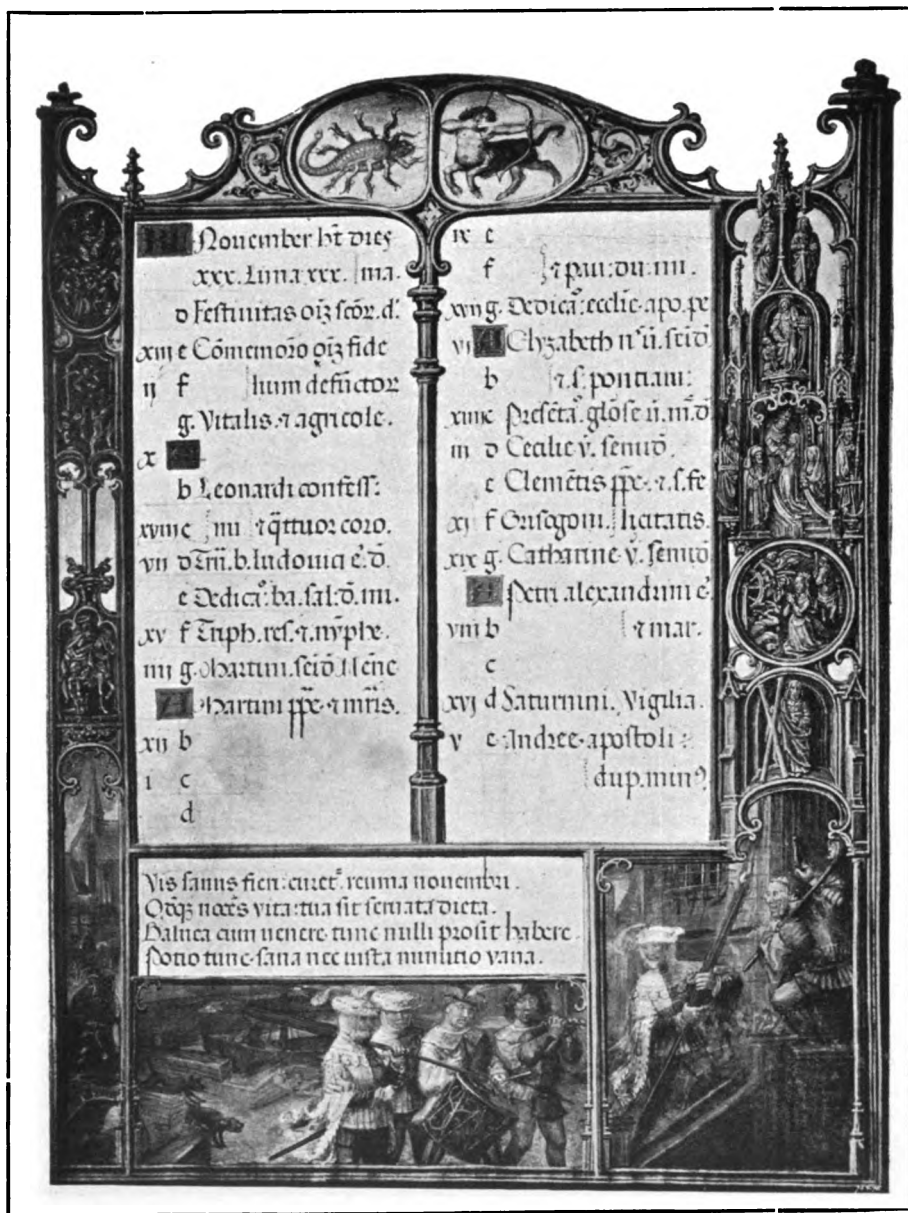 KL November ht dies
xxx. Luna xxx. ma.
d Festivitas oiz scor. d'.
xiii e Cōmemoro oiz fide
ii f lium defuctor
g. Vitalis. ⁊ agricole.
x A
b Leonardi confess:
xviii c iiii ⁊ qttuor coro.
vii d Trii. b. ludovici e'. d.
e Dedica: ba. sal. d. iii.
xv f Triph. res. ⁊. nyphe.
iiii g. Martini. seid. Mene
A Martini ppe. ⁊ mris.
xii b
i c
d
ix e
f ⁊ pau: du: mi.
xvii g. Dedica: ecclie. apo. pe
vi A Elyzabeth n' ii. seid
b ⁊. s. pontiani:
xiiii c Presēta. glose ū. m. d
iii d Cecilie v. semid.
e Clemētis ppe. ⁊. s. fe
xi f Grisogoni. licitatis.
xix g. Catharine v. semid
A Petri alexandrini e'
viii b ⁊ mar.
c
xvi d Saturnini. Vigilia.
v e Andree. apostoli:
dup. min9
Vis sanus fieri: curet'. reuma novembri.
nocēs vita: tua sit servata dieta.
Balnea cum venere tunc nulli prosit habere.
Potio tunc sana nec iusta minutio vana.